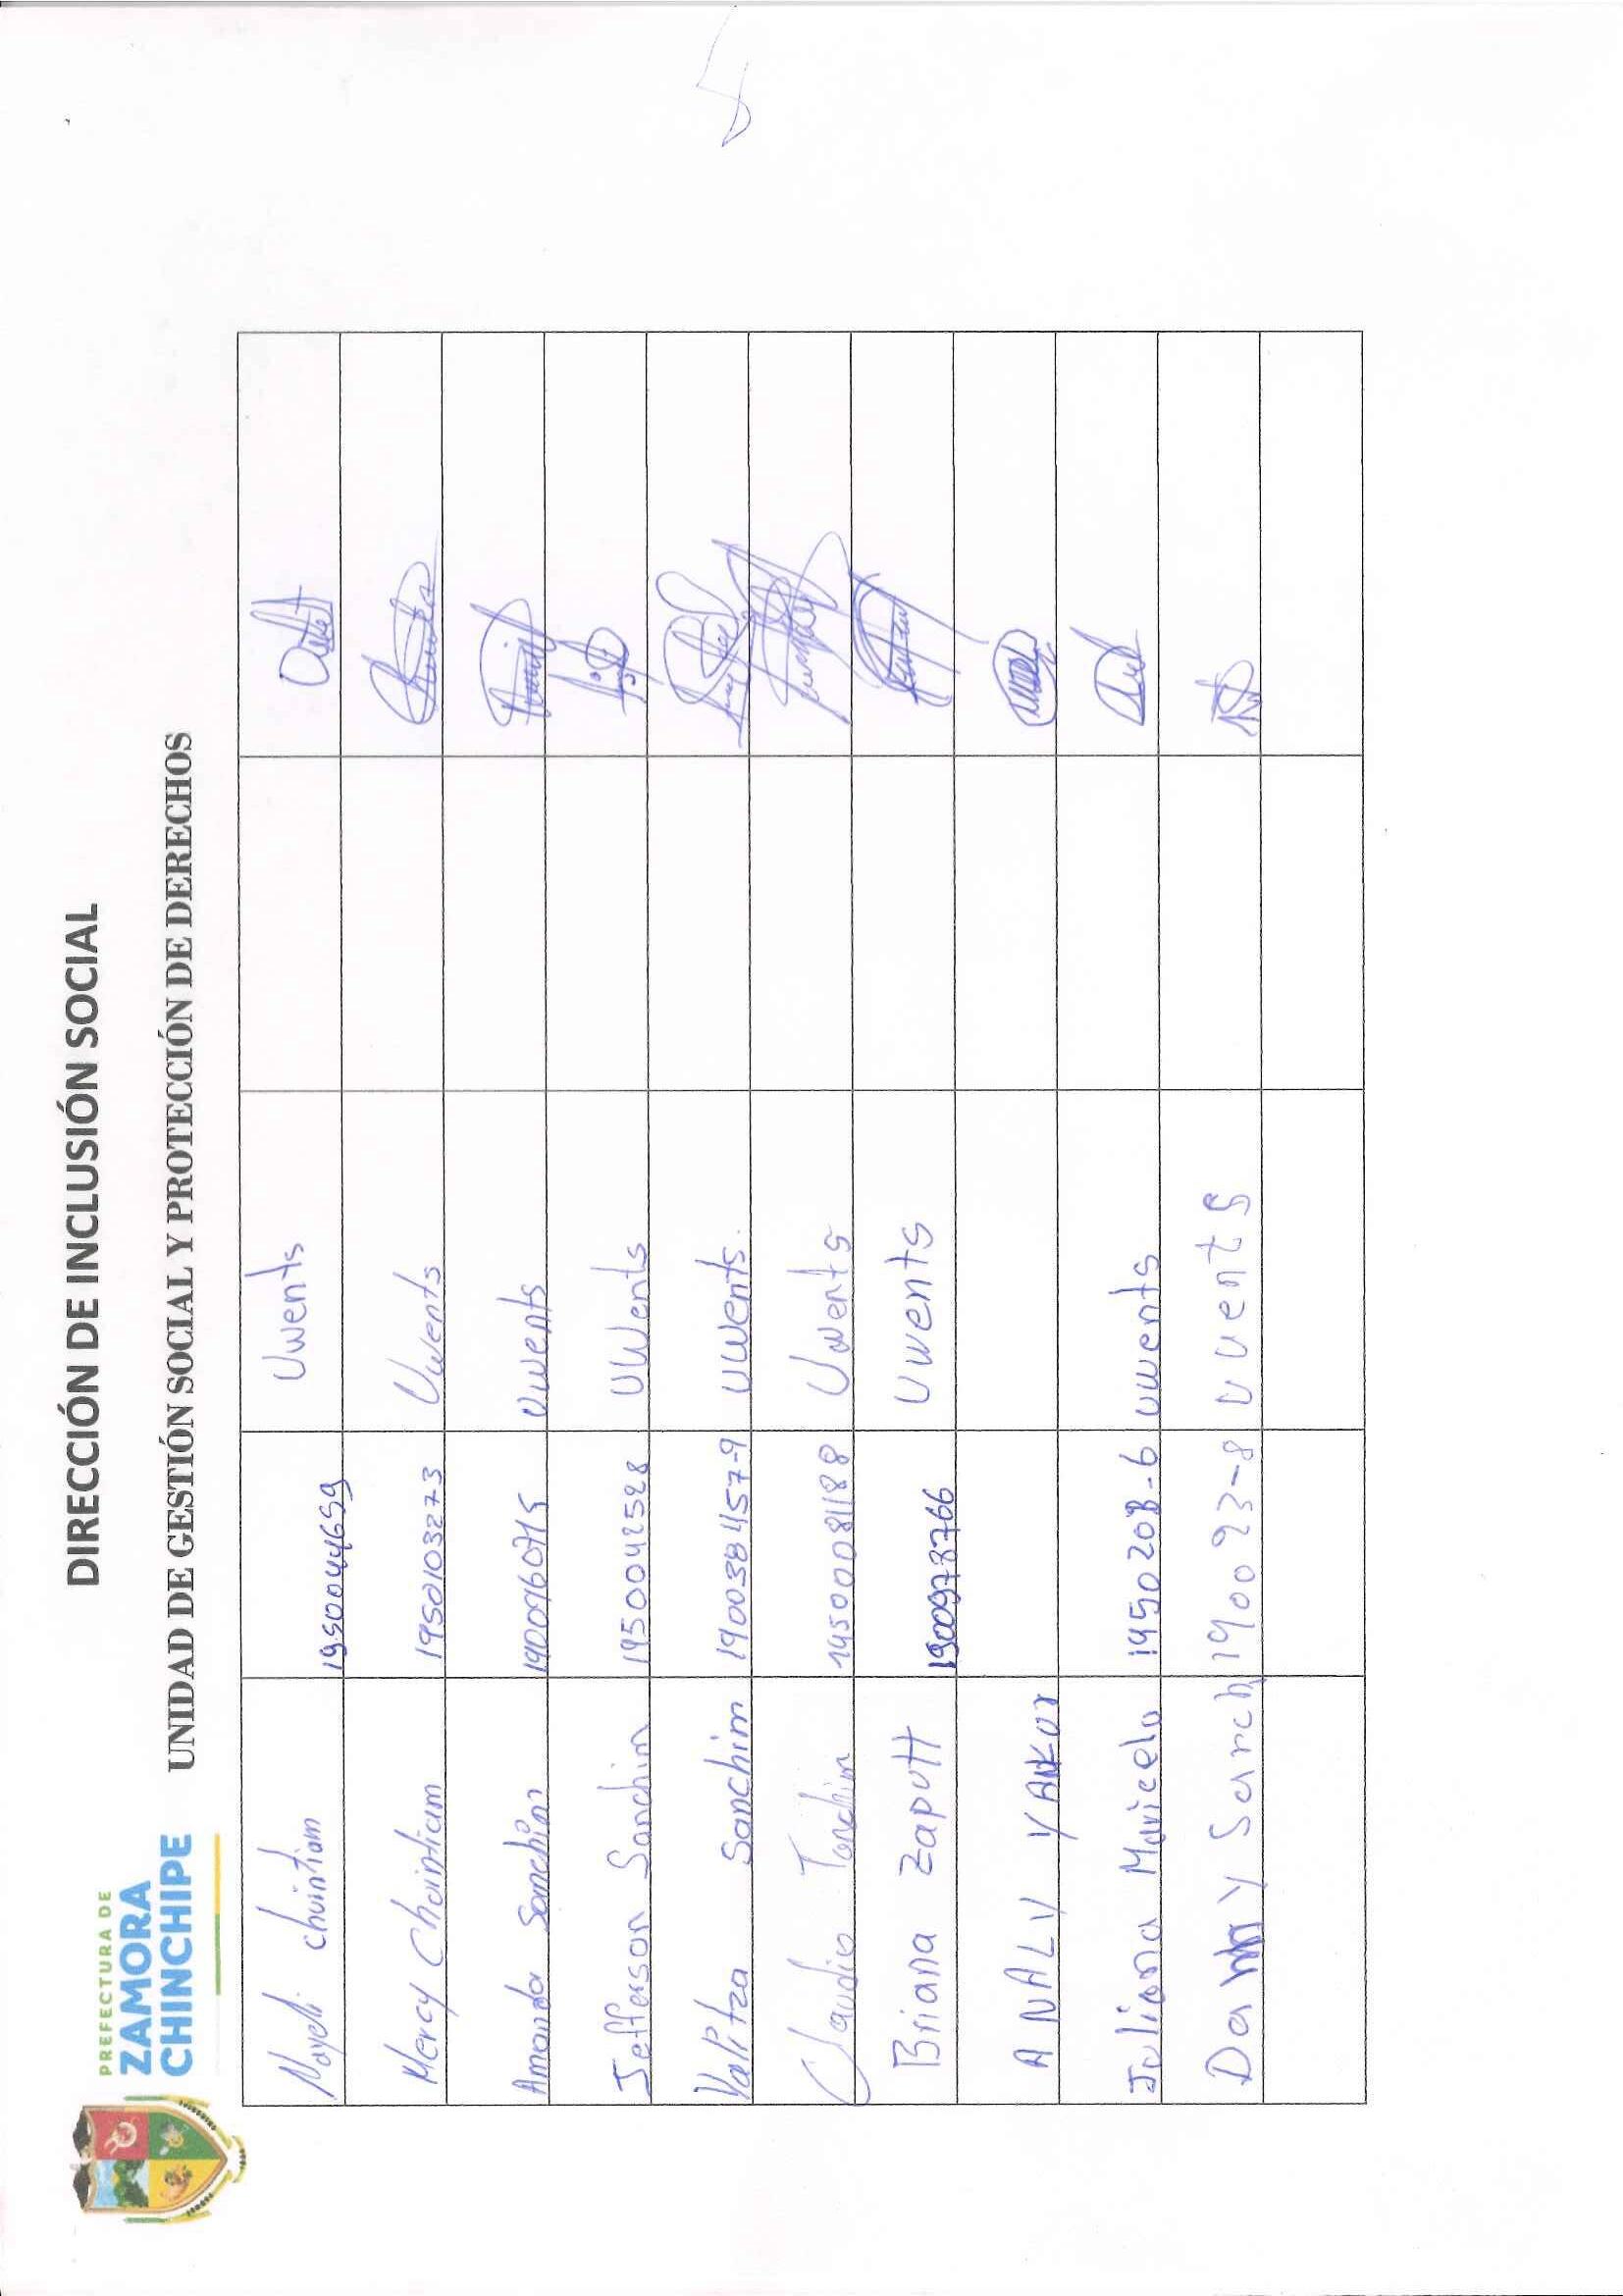 PREFECTURA DE
ZAMORA
CHINCHIPE
DIRECCIÓN DE INCLUSIÓN SOCIAL
UNIDAD DE GESTIÓN SOCIAL Y PROTECCIÓN DE DERECHOS
Nayeli chuintiam 1950044659 Uwents
Mercy Chuintium 1950103273 Uwents
Amanda Sanchim 1900960715 Uwents
Jefferson Sanchim 1950042528 UWents
Yalitza Sanchim 190038457-9 UWents.
Claudio Tanchim 1450008188 Uwents
Briana Zaputt 1900973766 Uwents
ANALY YANKUR
Juliana Maricela 195020B-6 uwents
Danny Sanch 190093-8 uuents
5